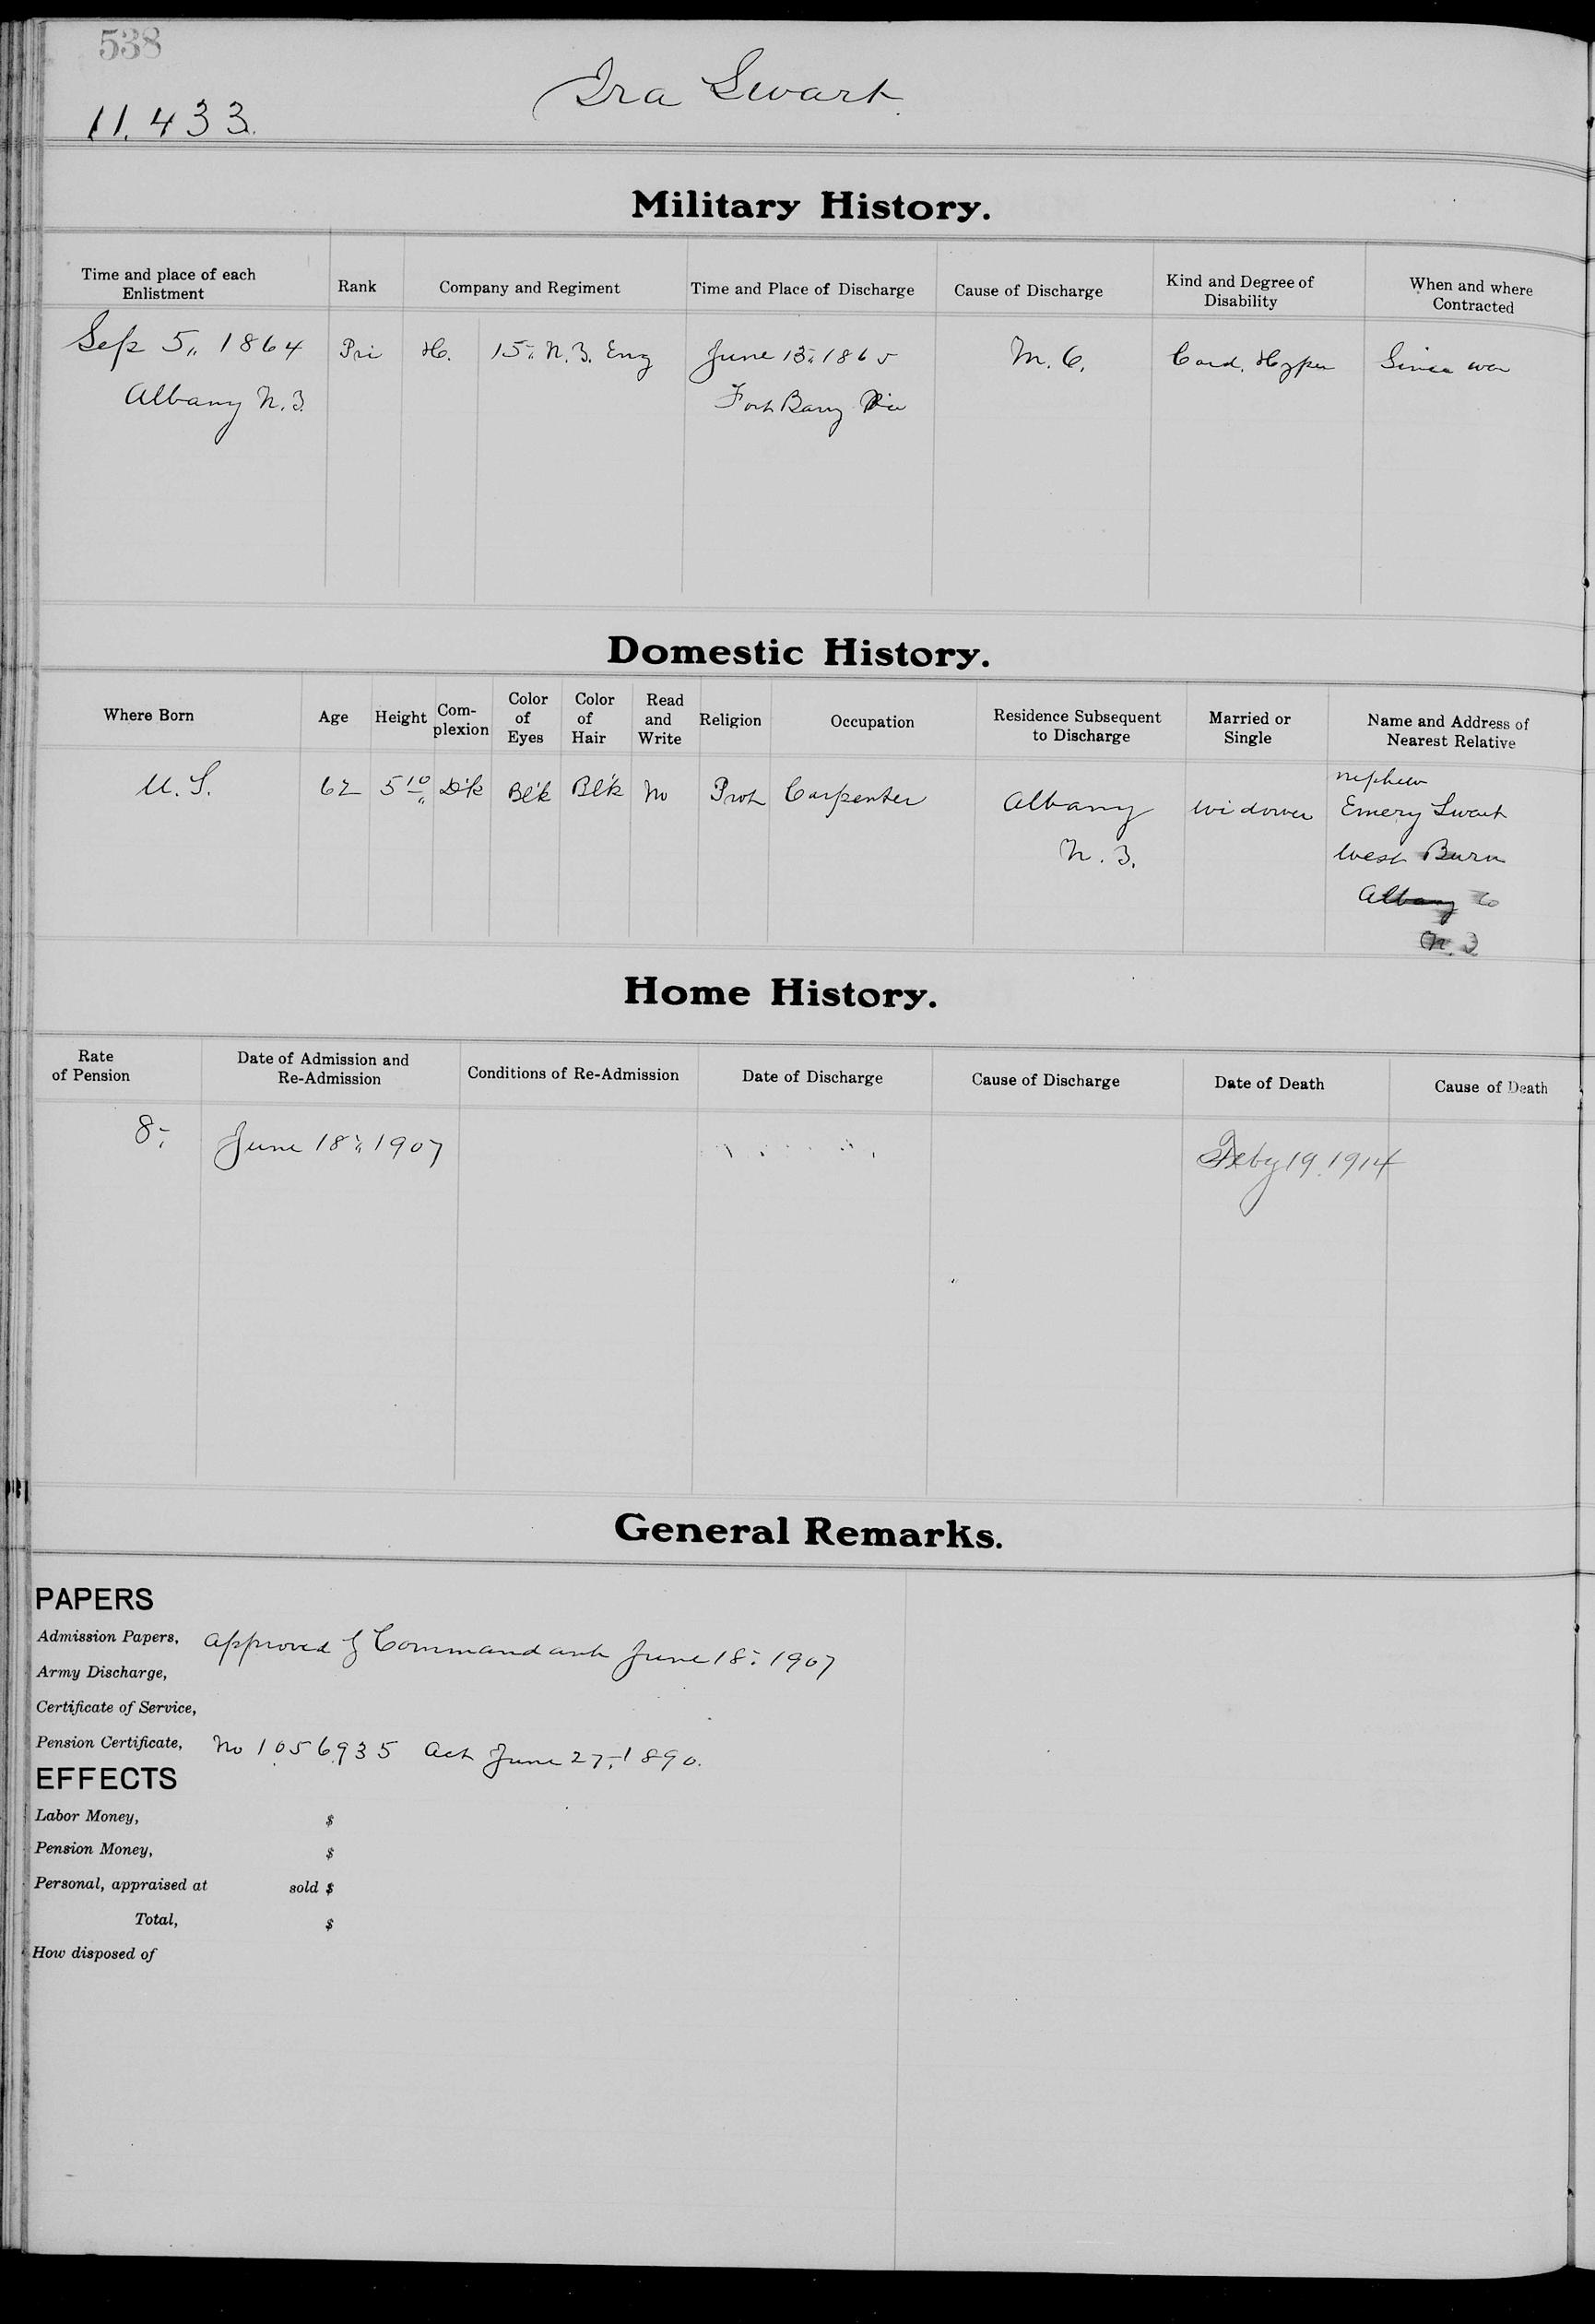 538
11.433.
Ira Swart
Military History.
Time and place of each Enlistment
Rank
Company and Regiment
Time and Place of Discharge
Cause of Discharge
Kind and Degree of Disability
When and where Contracted
Sep 5, 1864
Pri
H.
15" N.Y. Eng
June 13" 1865
M.O.
Card. Hyper
Since war
Albany N.Y.
Fort Barry
Domestic History.
Where Born
Age
Height
Complexion
Color of Eyes
Color of Hair
Read and Write
Religion
Occupation
Residence Subsequent to Discharge
Married or Single
Name and Address of Nearest Relative
U.S.
62
5 10"
D'k
Bl'k
Bl'k
No
Prot
Carpenter
Albany
N.Y.
Widower
nephew
Emery Swart
West Burn
Albany Co
N.Y
Home History.
Rate of Pension
Date of Admission and Re-Admission
Conditions of Re-Admission
Date of Discharge
Cause of Discharge
Date of Death
Cause of Death
8-
June 18" 1907
Feby 19 1914
General Remarks.
PAPERS
Admission Papers, approved by Commandant June 18- 1907
Army Discharge,
Certificate of Service,
Pension Certificate, No 1056935 Act June 27- 1890.
EFFECTS
Labor Money, $
Pension Money, $
Personal, appraised at sold $
Total, $
How disposed of